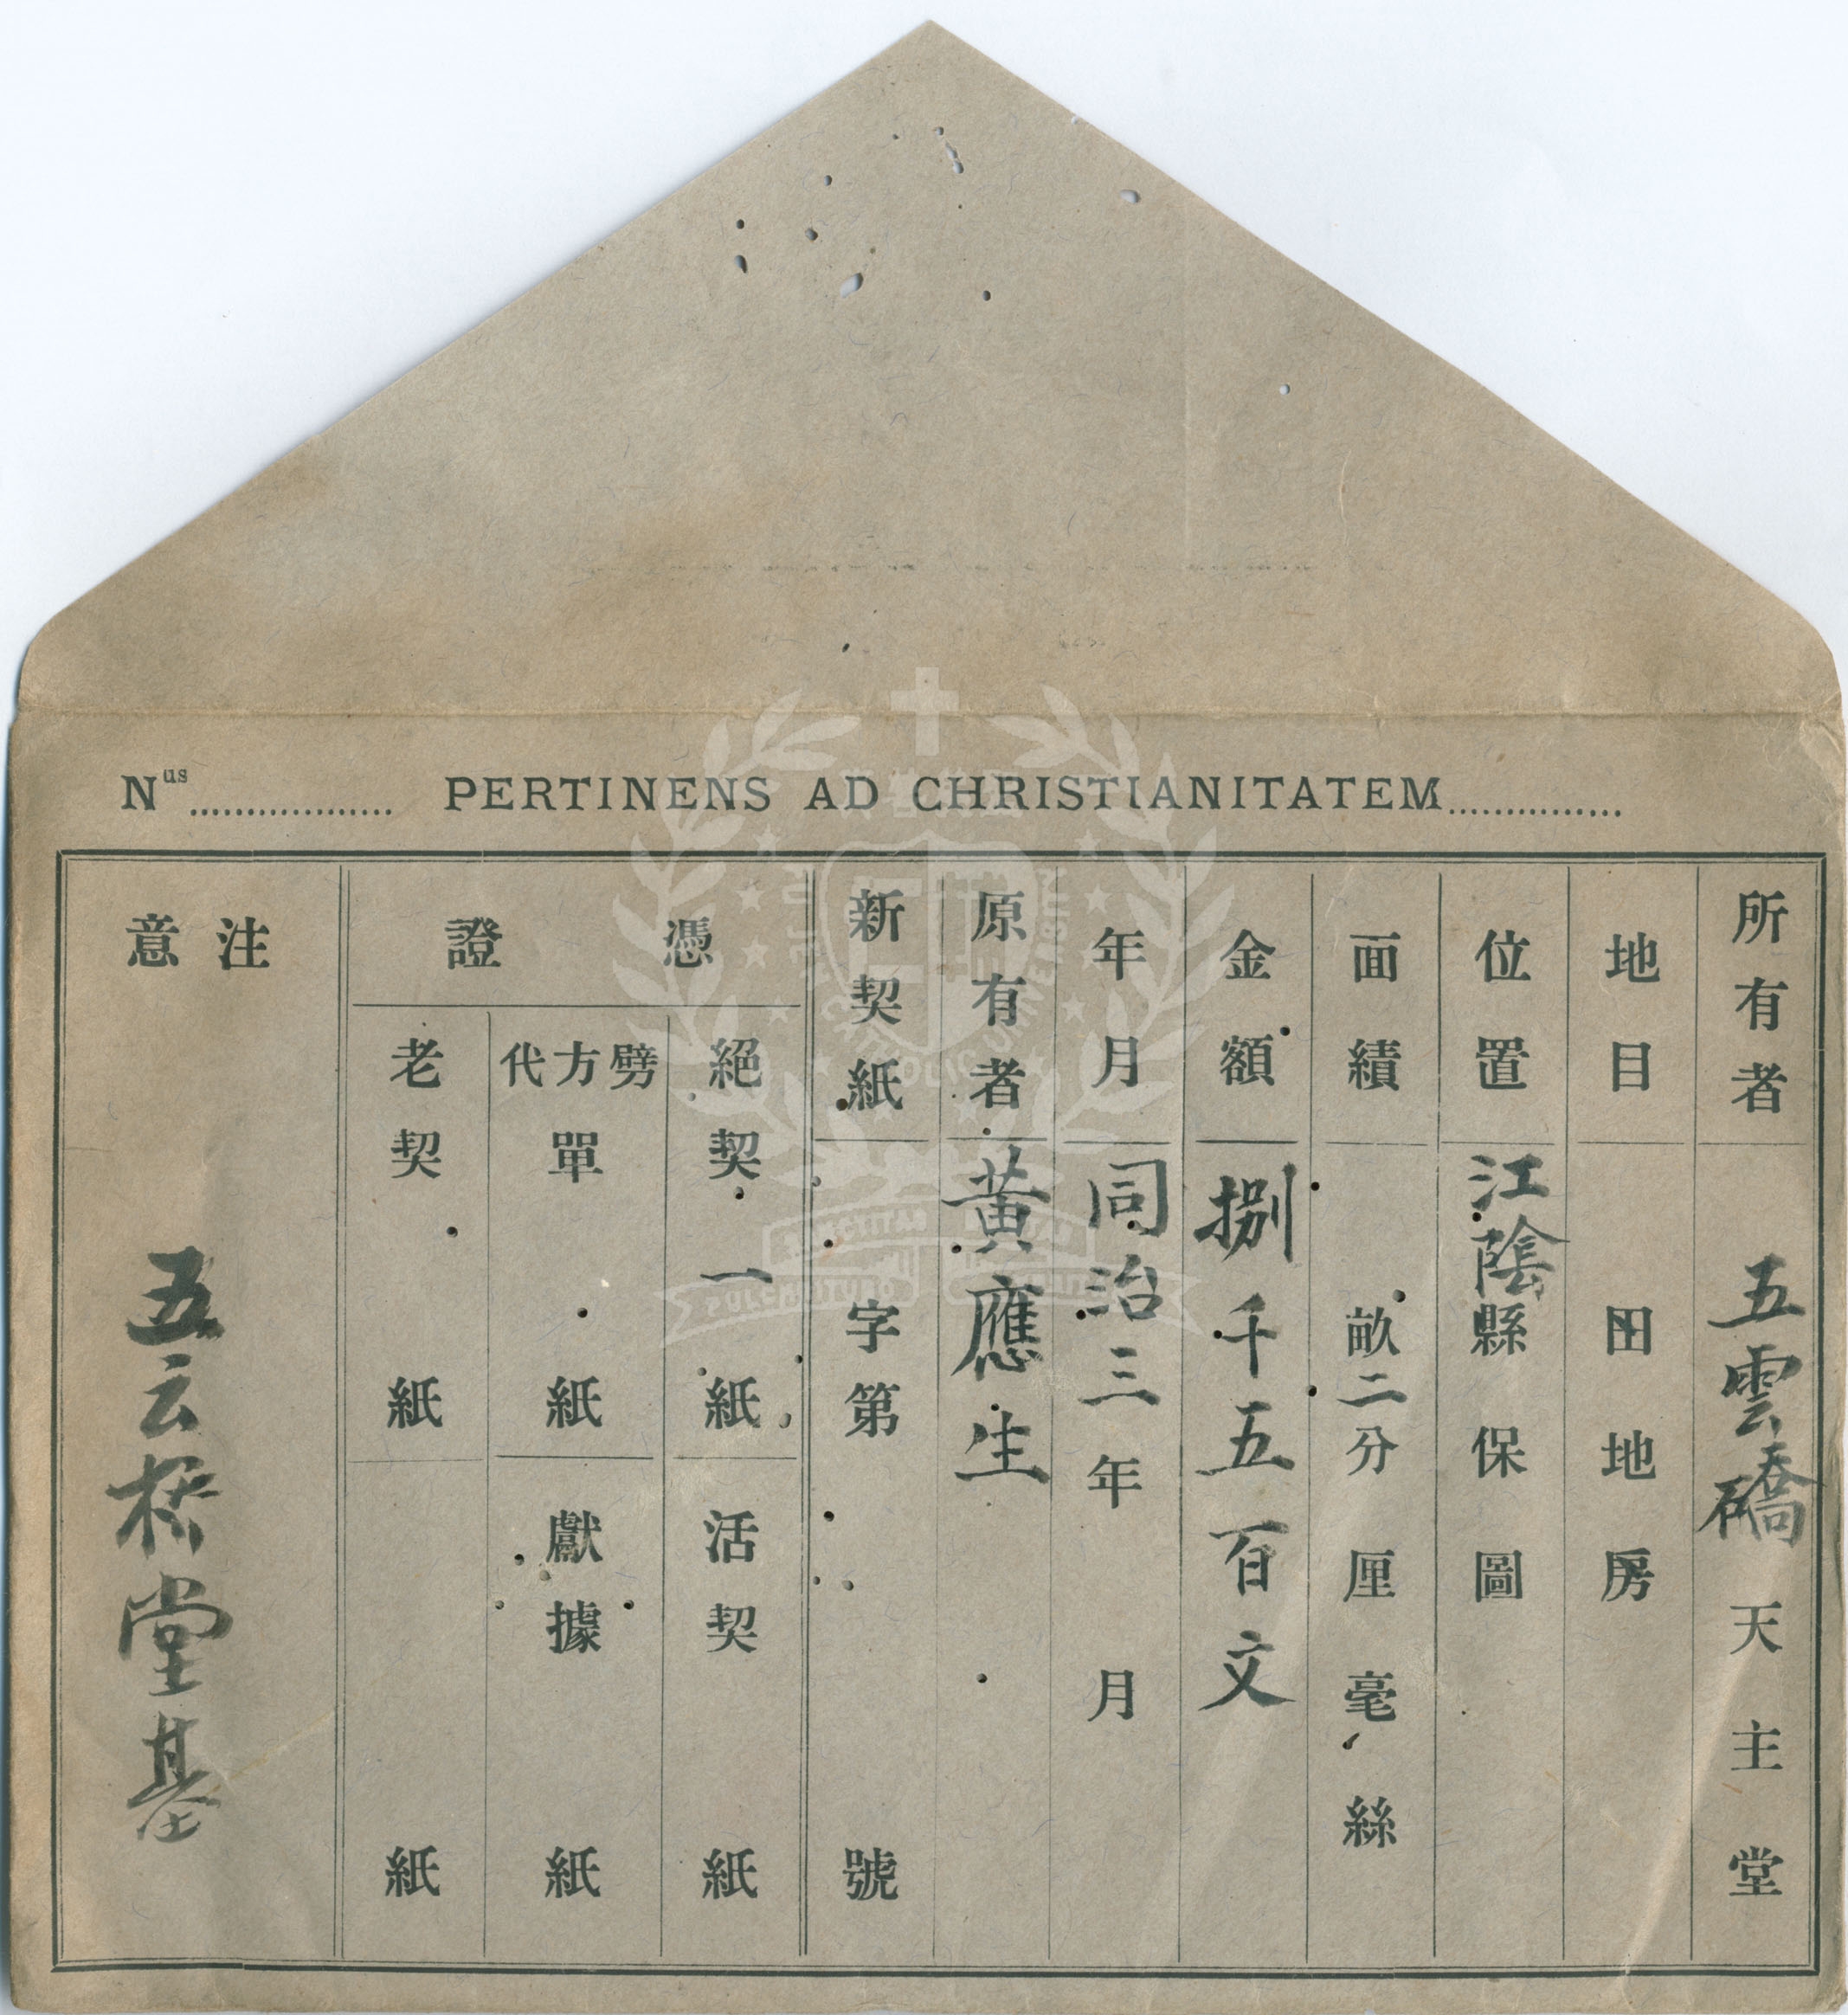 Nus.................. PERTINENS AD CHRISTIANITATEM...............
所有者 五雲礄天主堂
地目 田地房
位置 江陰縣保圖
面績 畝二分厘毫絲
金額 捌千五百文
年月 同治三年月
原有者 黃應生
新契紙 字第號
憑證
絕契一紙
活契紙
劈方代單紙
獻據紙
老契紙
紙
注意
五云桥堂基